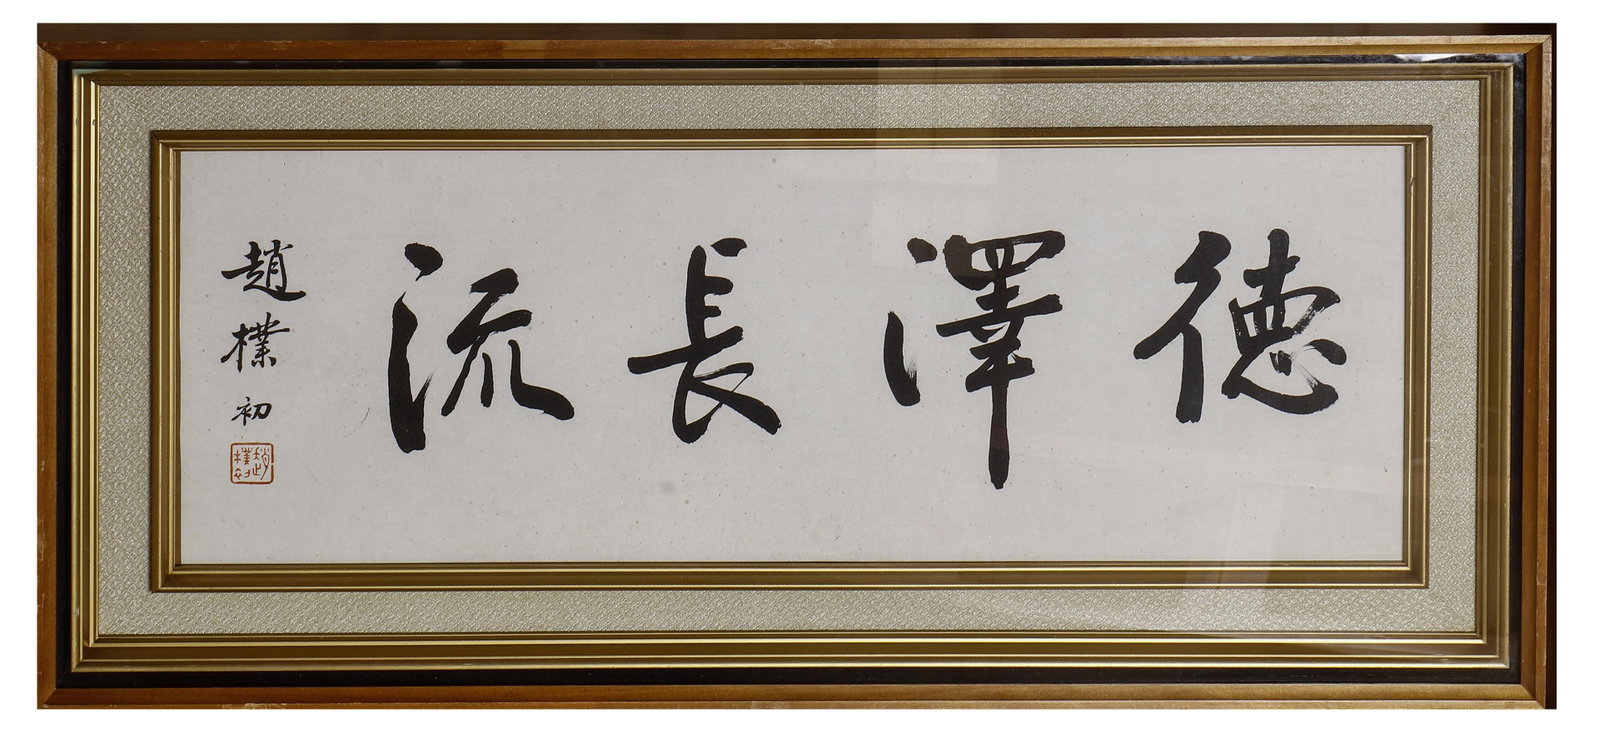 德澤長流
趙樸初
趙樸初